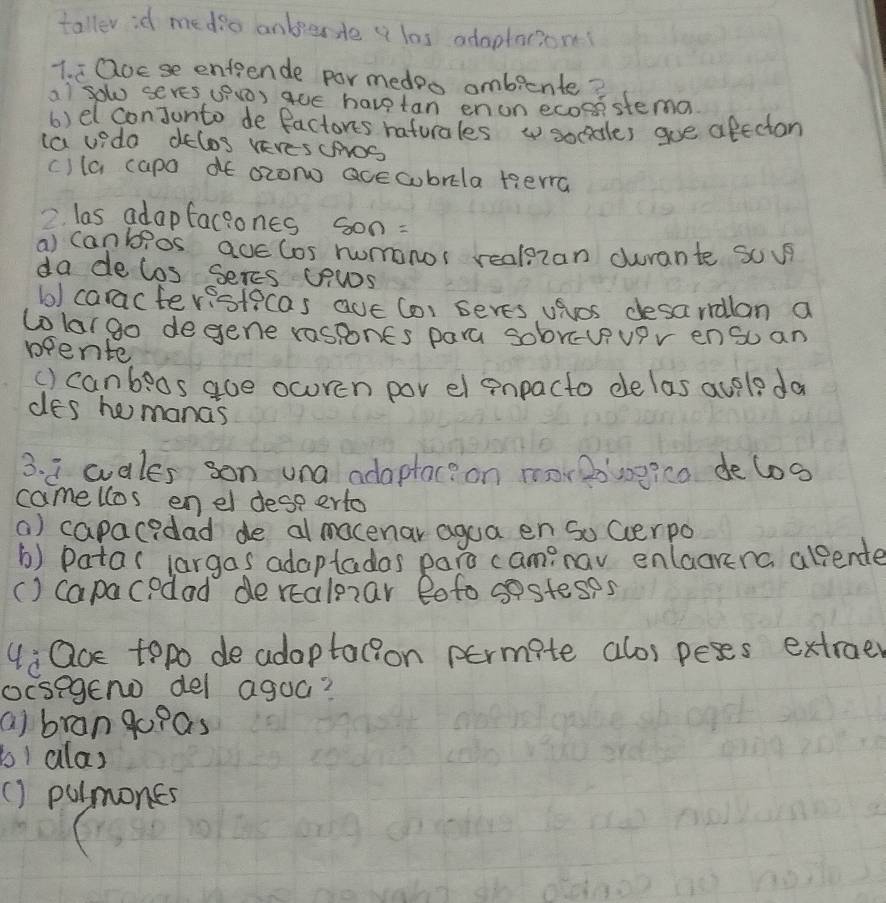 taller :d medio anbiente y las adaptacions
1.¿ Qoe se entiende por medio ambiente?
a) solo seres vivos que havitan en un ecosistema
b) el conJunto de factores naturales y sociales que afectan
la vida delos seres vivos
c) la capa de ozono qcecubrela tierra
2. las adaptaciones son =
a) canbios que los humanos realizan durante su vi
da de los seres vivos
b) caracteristicas que los seres vivos desarrollan a
lo largo de gene rasiones para sobrevivir en su an
biente
c) canbios que ocuren por el inpacto de las avili da
des humanas
3.¿ cuales son una adaptacion de los
camellos en el desi erto
a) capacidad de almacenar agua en su cuerpo
b) patas largas adaptadas para caminar enlaarena caliente
c) capacidad de realizar foto sistesis
4.¿ Qoe tipo de adaptacion permite alos peses extraer
ocsigeno del agua?
a) branquias
b) alas
c) pulmones